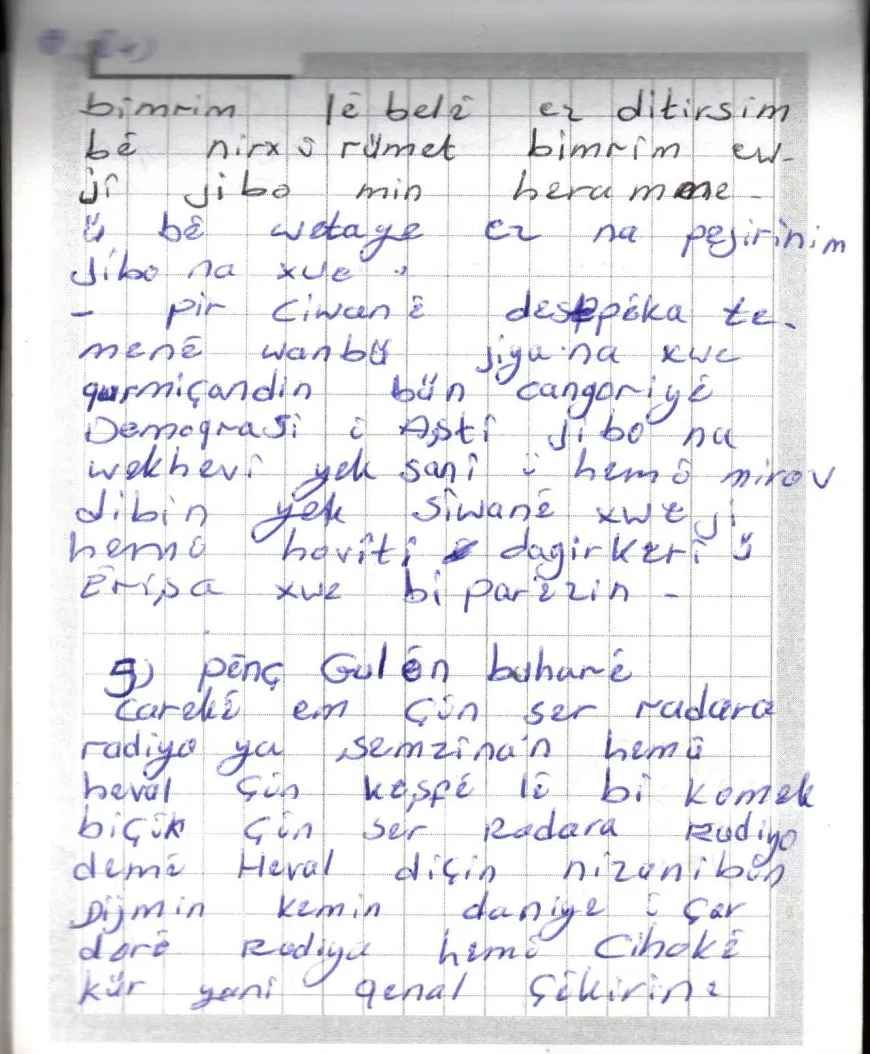 bimrim lê belê ez ditirsim
bê nirx û rûmet bimrim ew-
jî jibo min heram
û bê wetaye ez na pejirinim
jibo na xwe.
- pir Ciwanê despêka te-
menê wanbû jiya na xwe
qurmiçandin bûn cangoriyê
Demoqrasi û Aşti jibo na
wekhevi yek sani û hemû mirov
dibin yek Sîwanê xwe ji
hemû hovîti dagirkerî û
Êrişa xwe bi parêzin -
5) pênç Gulên buharê
Carekê em çûn ser radara
radiyo ya şemzina'n hemû
heval çûn keşfê lê bi komek
biçûk çûn ser Radara Radiyo
demê Heval diçin nizanibûn
Dijmin kemin daniye û çar
dorê Radiya hemû Cihokê
kûr yani qenal çêkirine